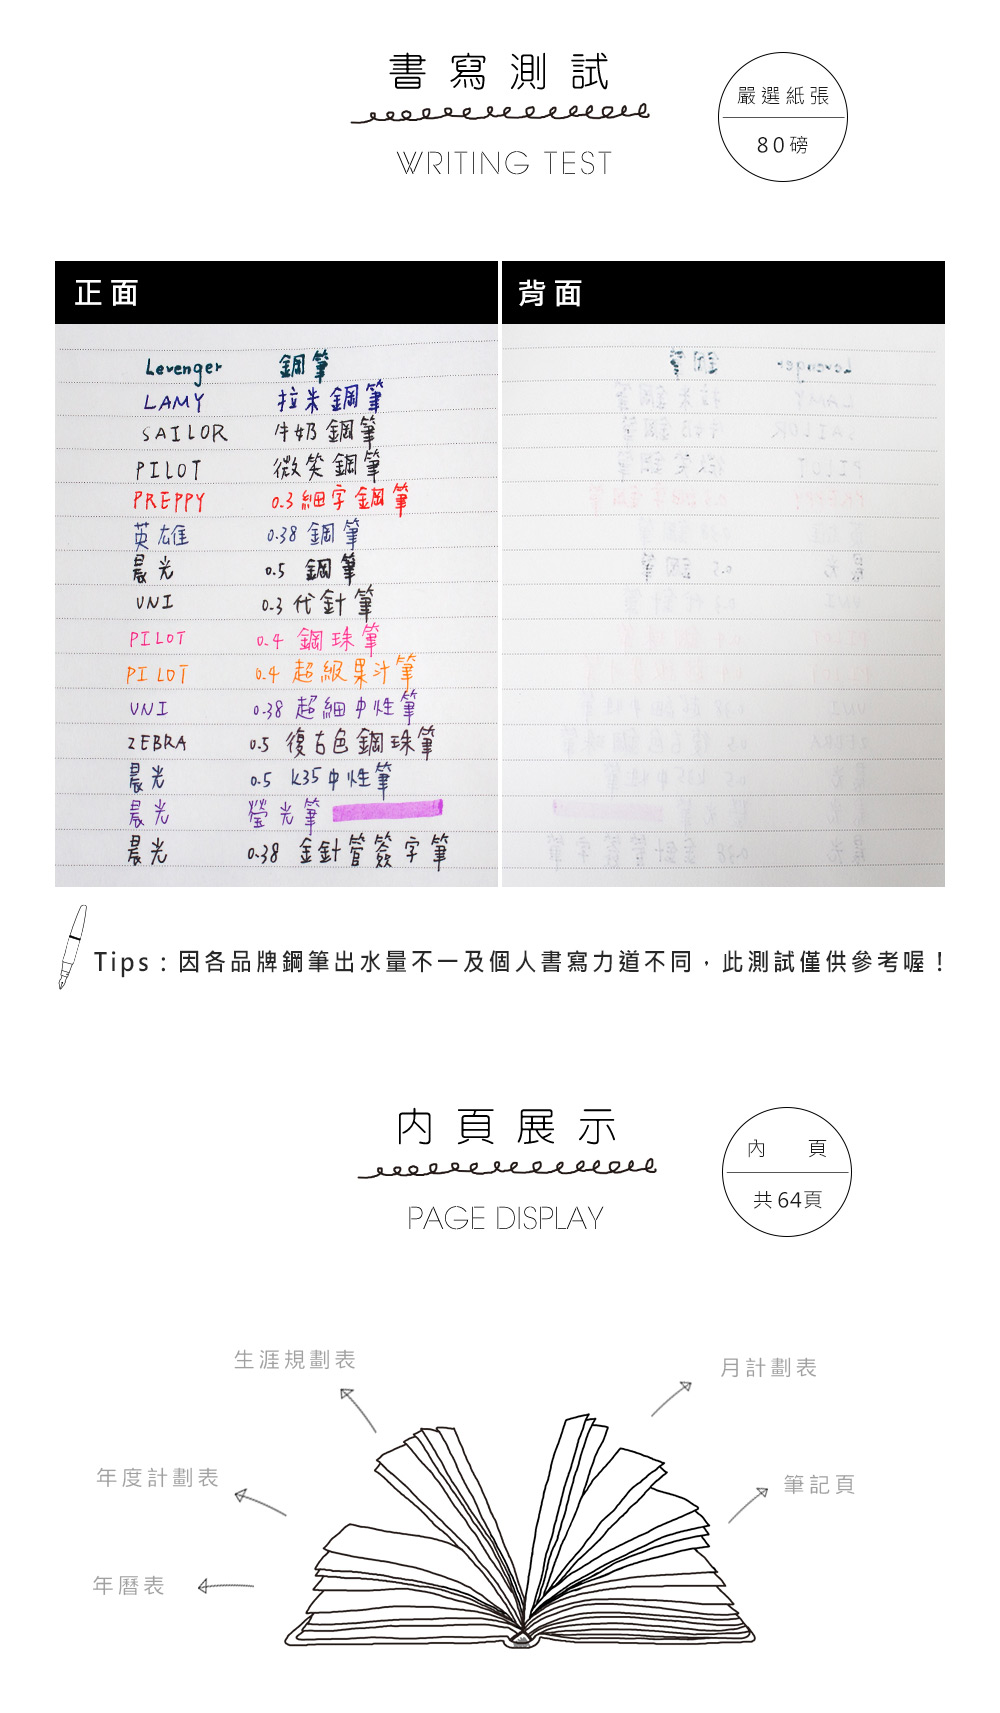 書寫測試
WRITING TEST
嚴選紙張
80磅
正面
背面
Levenger 鋼筆
LAMY 拉米鋼筆
SAILOR 牛奶鋼筆
PILOT 微笑鋼筆
PREPPY 0.3細字鋼筆
英雄 0.38 鋼筆
晨光 0.5 鋼筆
UNI 0.3 代針筆
PILOT 0.4 鋼珠筆
PILOT 0.4 超級果汁筆
UNI 0.38 超細中性筆
ZEBRA 0.5 復古色鋼珠筆
晨光 0.5 K35中性筆
晨光 螢光筆
晨光 0.38 金針管簽字筆
Tips：因各品牌鋼筆出水量不一及個人書寫力道不同，此測試僅供參考喔！
內頁展示
PAGE DISPLAY
內頁
共64頁
生涯規劃表
月計劃表
年度計劃表
筆記頁
年曆表